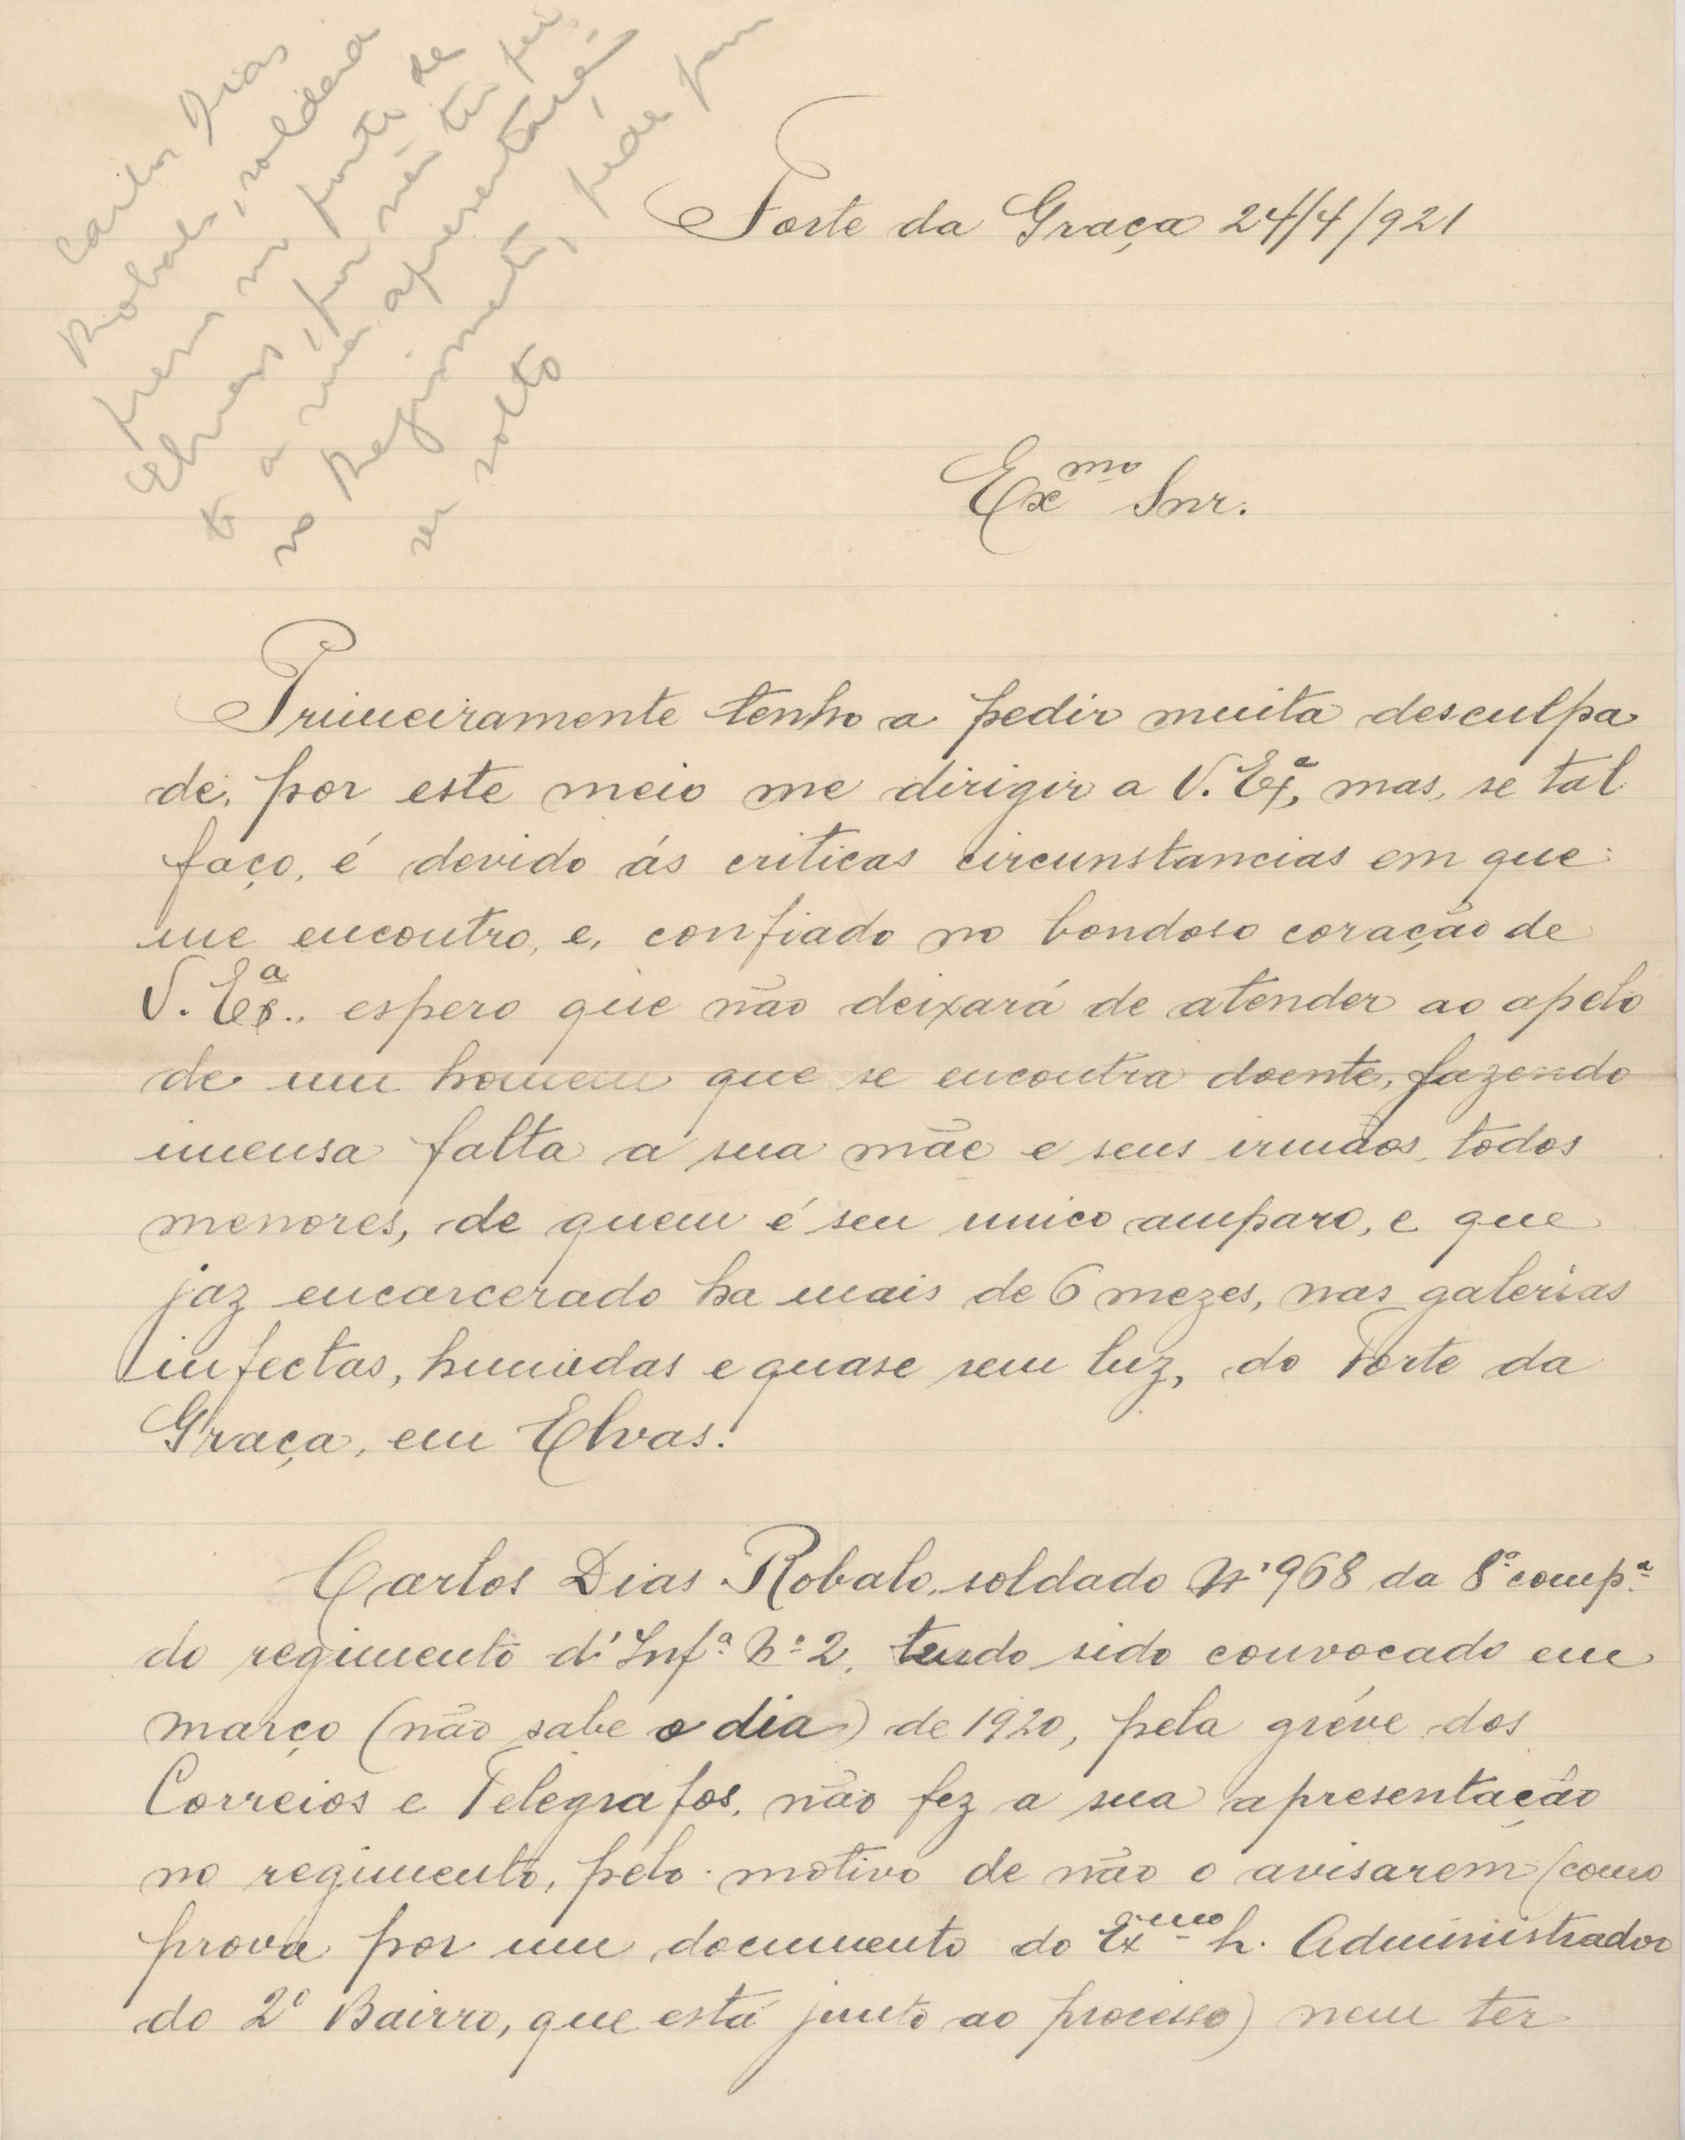 Carlos Dias
Robalo, soldado
preso no forte de
Elvas, por não ter fei
to a sua apresentação
no Regimento, pede para
ser solto
Forte da Graça 24/4/921
Ex.mo Snr.
Primeiramente tenho a pedir muita desculpa
de, por este meio me dirigir a V. Ex.ª, mas, se tal
faço, é devido ás criticas circunstancias em que
me encontro, e, confiado no bondoso coração de
V. Ex.ª, espero que não deixará de atender ao apelo
de um homem que se encontra doente, fazendo
imensa falta a sua mãe e seus irmãos, todos
menores, de quem é seu unico amparo, e que
jaz encarcerado ha mais de 6 mezes, nas galerias
infectas, humidas e quase sem luz, do Forte da
Graça, em Elvas.
Carlos Dias Robalo, soldado Nº 968 da 8ª comp.ª
do regimento d'Inf.ª Nº 2, tendo sido convocado em
março (não sabe o dia) de 1920, pela gréve dos
Correios e Telegrafos, não fez a sua apresentação
no regimento, pelo motivo de não o avisarem (como
prova por um documento do Ex.mo Sr. Administrador
do 2º Bairro, que está junto ao processo) nem ter